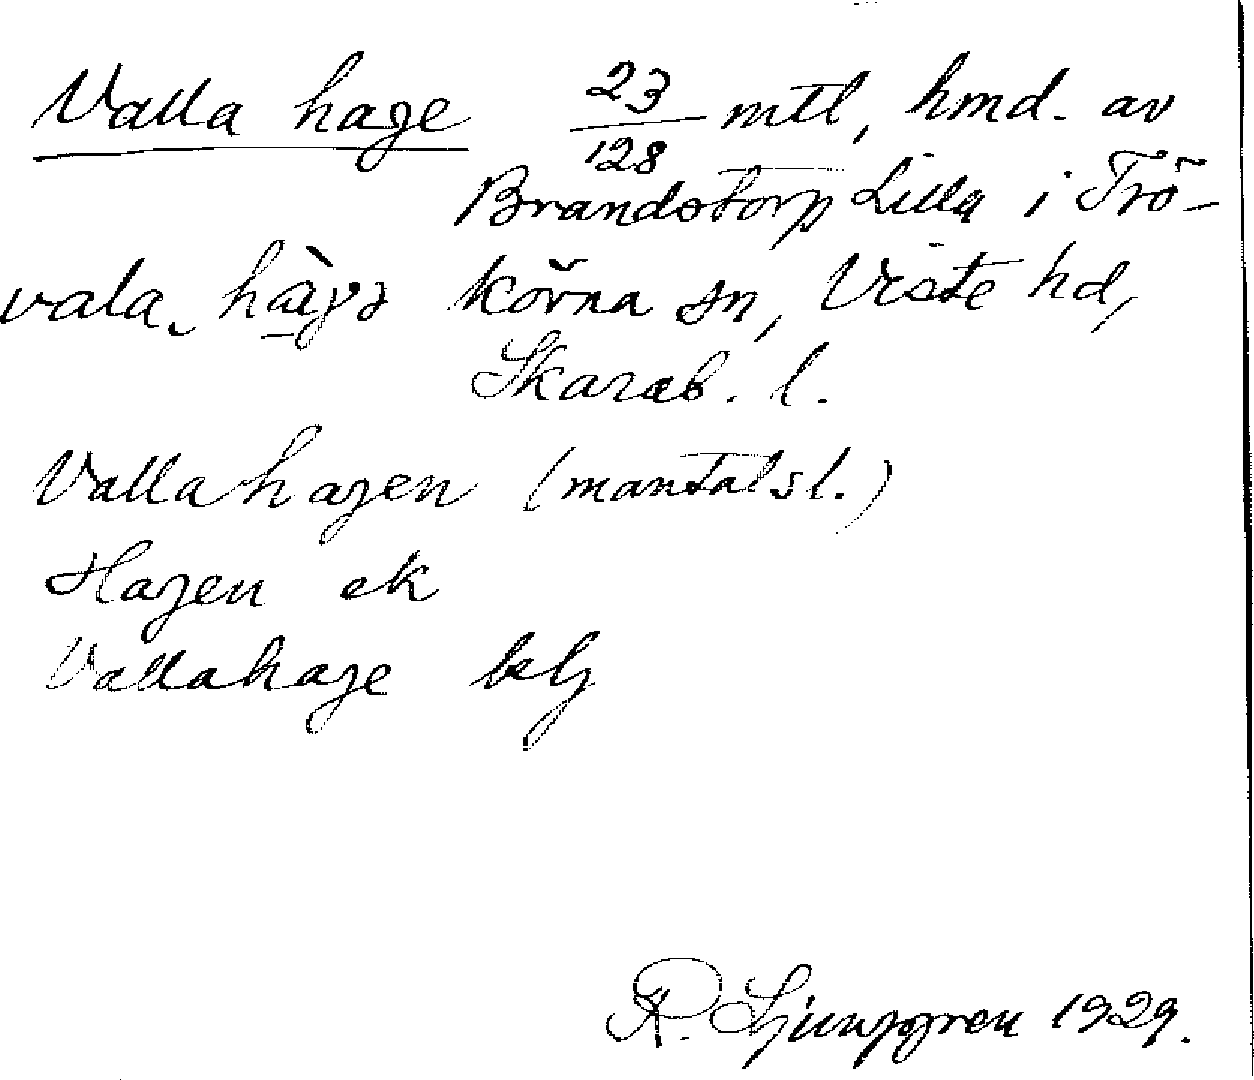 Valla hage 23/128 mtl, hmd. av
Brandstorp Lilla i Trö-
vala hàgə körna sn, Viste hd,
Skarab. l.
Vallahagen (mantalsl.)
Hagen ek
Vallahage blg
R. Ljunggren 1929.